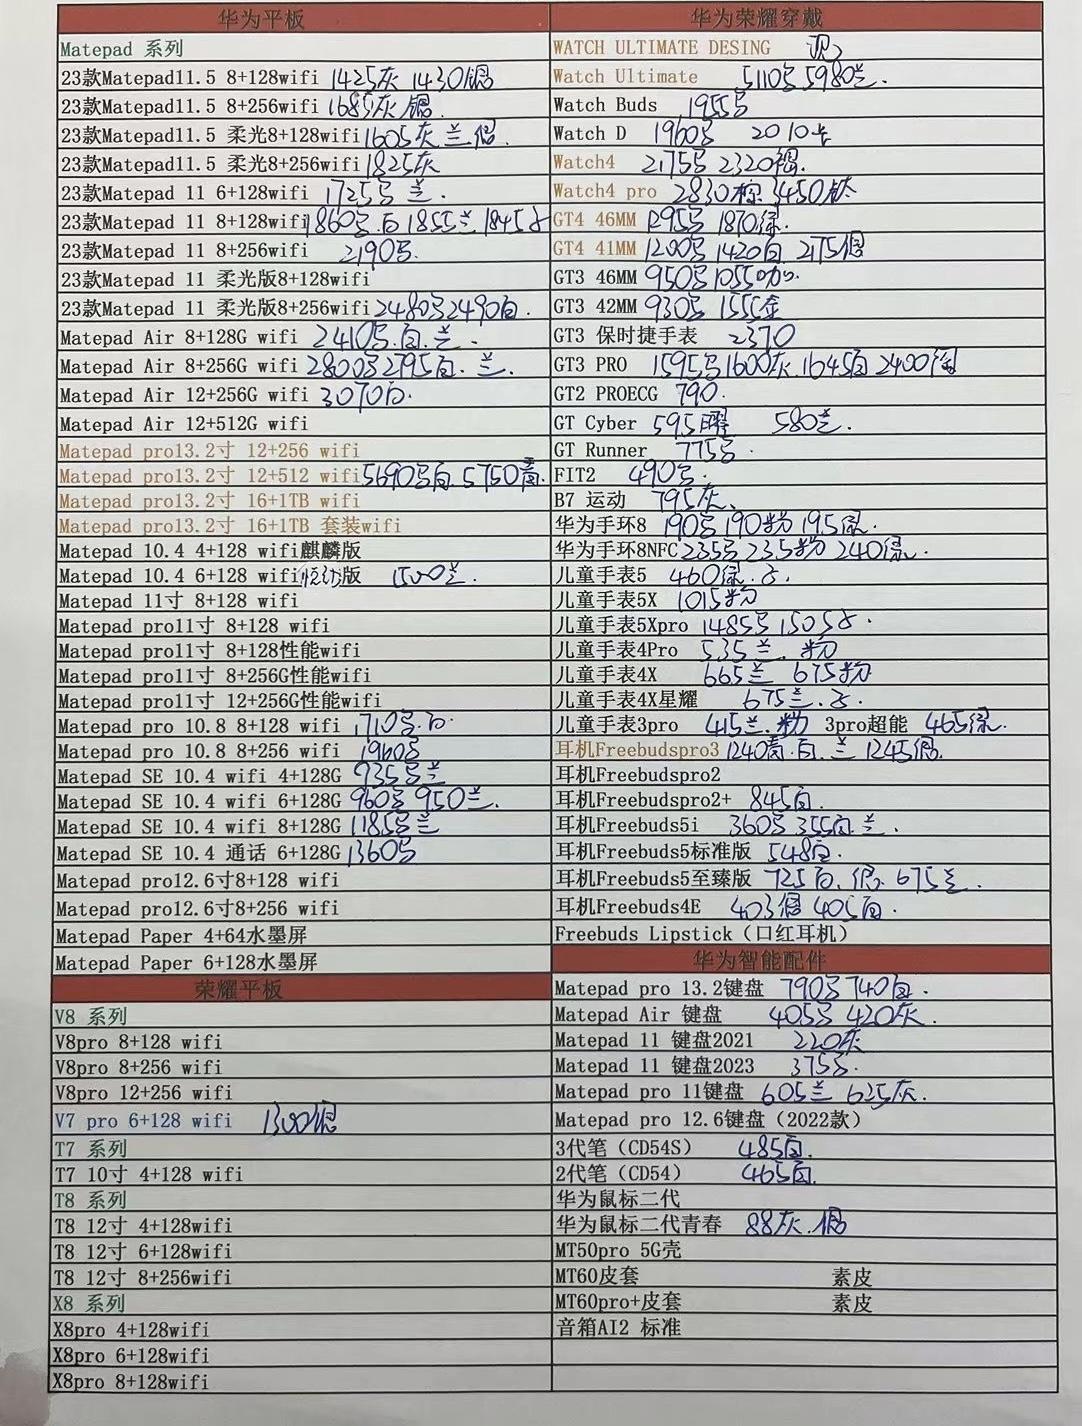 华为平板
Matepad 系列
23款Matepad11.5 8+128wifi 1425灰 1430银
23款Matepad11.5 8+256wifi 1685灰 银
23款Matepad11.5 柔光8+128wifi 1605灰 兰 银.
23款Matepad11.5 柔光8+256wifi 1825灰
23款Matepad 11 6+128wifi 1725号 兰.
23款Matepad 11 8+128wifi 1860号.白 1855兰 1845
23款Matepad 11 8+256wifi 2190号.
23款Matepad 11 柔光版8+128wifi
23款Matepad 11 柔光版8+256wifi 2480号 2490白.
Matepad Air 8+128G wifi 2410号.白.兰.
Matepad Air 8+256G wifi 2800号 2795白.兰.
Matepad Air 12+256G wifi 3070白.
Matepad Air 12+512G wifi
Matepad pro13.2寸 12+256 wifi
Matepad pro13.2寸 12+512 wifi 5690号白. 5750青.
Matepad pro13.2寸 16+1TB wifi
Matepad pro13.2寸 16+1TB 套装wifi
Matepad 10.4 4+128 wifi麒麟版
Matepad 10.4 6+128 wifi 版 1500兰.
Matepad 11寸 8+128 wifi
Matepad pro11寸 8+128 wifi
Matepad pro11寸 8+128性能wifi
Matepad pro11寸 8+256G性能wifi
Matepad pro11寸 12+256G性能wifi
Matepad pro 10.8 8+128 wifi 1710号.白.
Matepad pro 10.8 8+256 wifi 1960号
Matepad SE 10.4 wifi 4+128G 935号兰
Matepad SE 10.4 wifi 6+128G 960号 950兰.
Matepad SE 10.4 wifi 8+128G 1185号兰
Matepad SE 10.4 通话 6+128G 1360号
Matepad pro12.6寸8+128 wifi
Matepad pro12.6寸8+256 wifi
Matepad Paper 4+64水墨屏
Matepad Paper 6+128水墨屏
荣耀平板
V8 系列
V8pro 8+128 wifi
V8pro 8+256 wifi
V8pro 12+256 wifi
V7 pro 6+128 wifi 1300银
T7 系列
T7 10寸 4+128 wifi
T8 系列
T8 12寸 4+128wifi
T8 12寸 6+128wifi
T8 12寸 8+256wifi
X8 系列
X8pro 4+128wifi
X8pro 6+128wifi
X8pro 8+128wifi
华为荣耀穿戴
WATCH ULTIMATE DESING 现
Watch Ultimate 5110号 5980兰.
Watch Buds 1955号
Watch D 1960号 2010卡
Watch4 2175号 2320褐.
Watch4 pro 2830棕 3450钛
GT4 46MM 1295号 1870绿.
GT4 41MM 1200号 1420白. 2175银
GT3 46MM 950号 1055咖.
GT3 42MM 930号 1555金
GT3 保时捷手表 2370
GT3 PRO 1595号 1600灰 1645白 2400陶
GT2 PROECG 790.
GT Cyber 595曜 580兰.
GT Runner 775号.
FIT2 490号.
B7 运动 795灰.
华为手环8 190号 190粉 195绿.
华为手环8NFC 235号 235粉 240绿.
儿童手表5 460绿.
儿童手表5X 1015粉
儿童手表5Xpro 1485号 1505
儿童手表4Pro 535兰. 粉
儿童手表4X 665兰 675粉
儿童手表4X星耀 675兰.
儿童手表3pro 415兰.粉 3pro超能 465绿.
耳机Freebudspro3 1240青.白.兰 1245银.
耳机Freebudspro2
耳机Freebudspro2+ 845白.
耳机Freebuds5i 360号 355白 兰.
耳机Freebuds5标准版 548白.
耳机Freebuds5至臻版 725白. 银. 675兰.
耳机Freebuds4E 403银 405白.
Freebuds Lipstick（口红耳机）
华为智能配件
Matepad pro 13.2键盘 790号 740白.
Matepad Air 键盘 405号 420灰.
Matepad 11 键盘2021 220灰
Matepad 11 键盘2023 375号.
Matepad pro 11键盘 605兰 625灰.
Matepad pro 12.6键盘（2022款）
3代笔（CD54S） 485白.
2代笔（CD54） 465白.
华为鼠标二代
华为鼠标二代青春 88灰.银
MT50pro 5G壳
MT60皮套 素皮
MT60pro+皮套 素皮
音箱AI2 标准